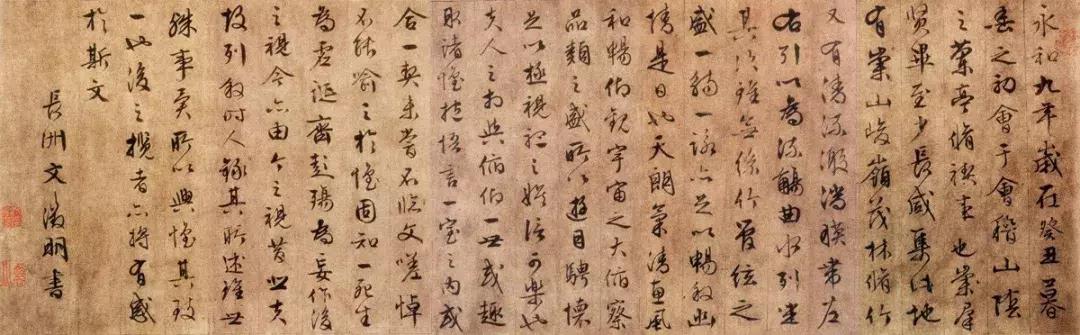 永和九年歲在癸丑暮
春之初會于會稽山陰
之蘭亭脩禊事也羣
賢畢至少長咸集此地
有崇山峻嶺茂林脩竹
又有清流激湍暎帶左
右引以為流觴曲水列坐
其次雖無絲竹管弦之
盛一觴一詠亦足以暢敘幽
情是日也天朗氣清惠風
和暢仰觀宇宙之大俯察
品類之盛所以遊目騁懷
足以極視聽之娛信可樂也
夫人之相與俯仰一世或趣
取諸懷抱悟言一室之內或
合一契未嘗不臨文嗟悼
不能喻之於懷固知一死生
為虛誕齊彭殤為妄作後
之視今亦由今之視昔悲夫
故列敘時人錄其所述雖世
殊事異所以興懷其致
一也後之攬者亦將有感
於斯文
長洲文徵明書